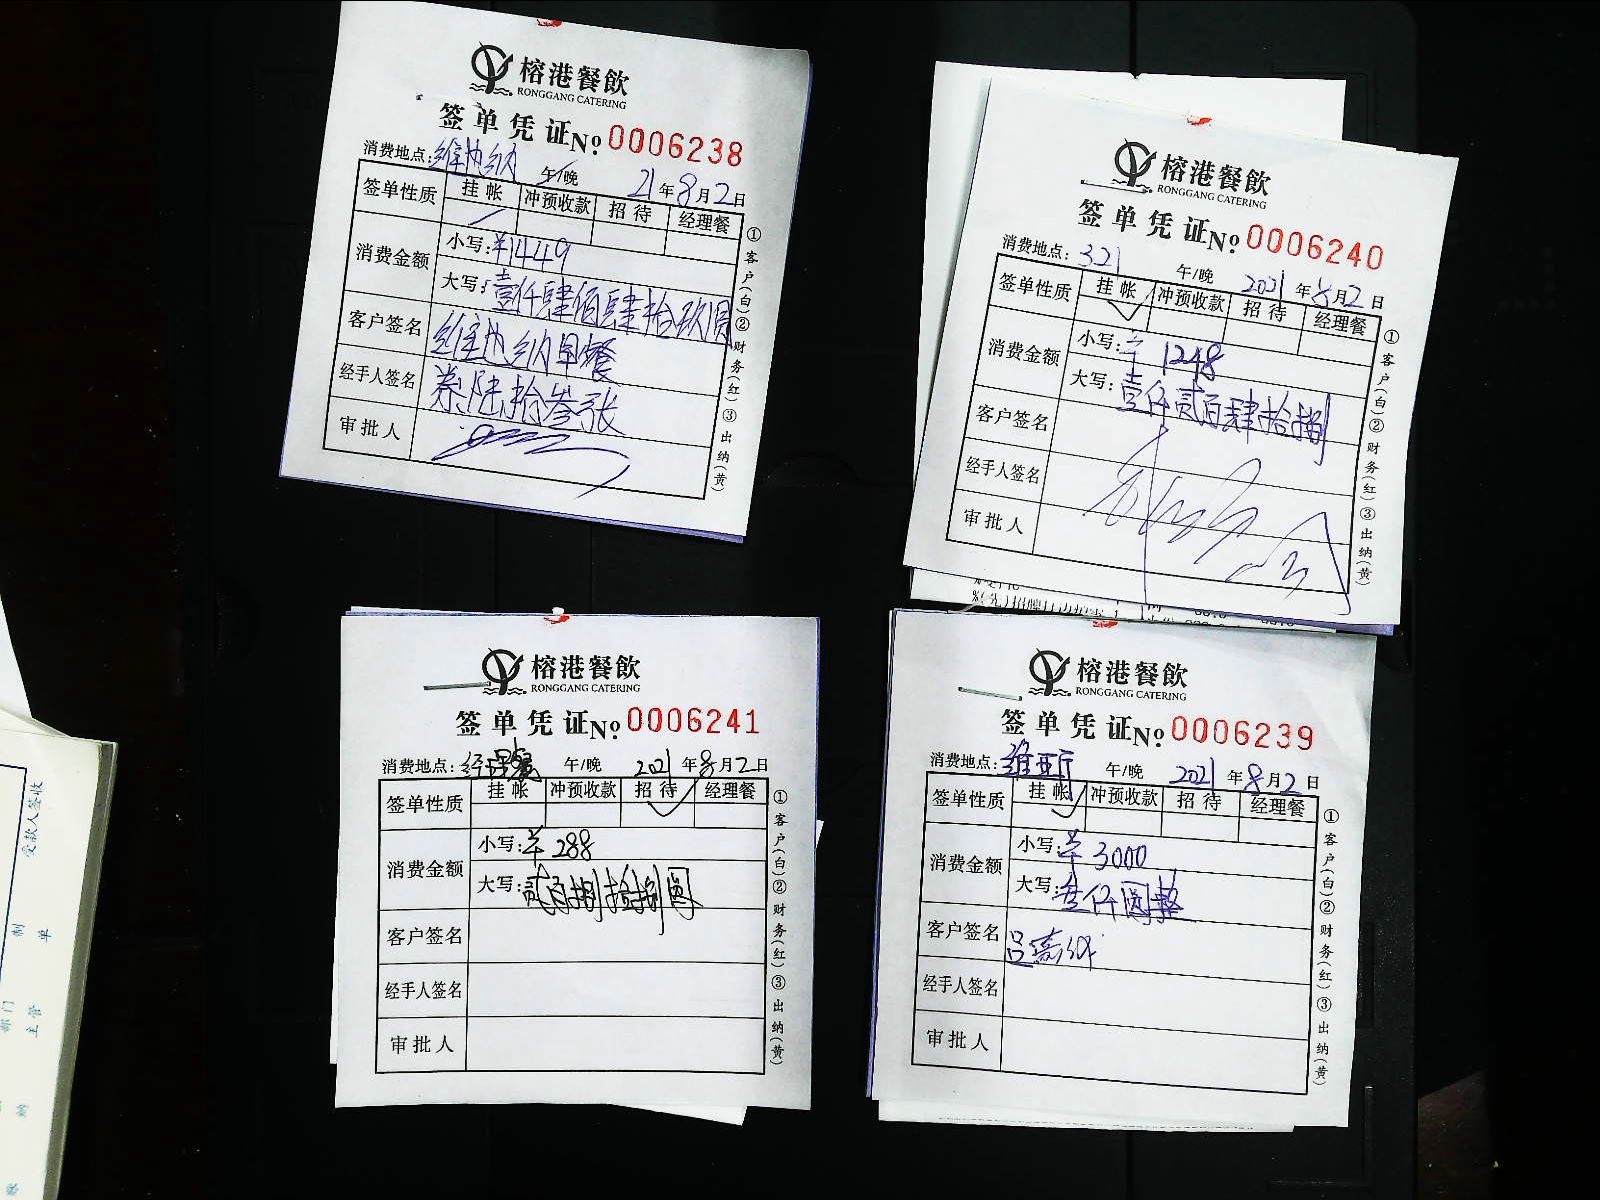 榕港餐飲
RONGGANG CATERING
签单凭证 No. 0006238
消费地点: 维也纳 午/晚 21年8月2日
签单性质 挂帐 冲预收款 招待 经理餐
消费金额 小写: ¥1449
大写: 壹仟肆佰肆拾玖圆
客户签名 维也纳早餐
经手人签名 券陆拾叁张
审批人
①客户(白)②财务(红)③出纳(黄)
榕港餐飲
RONGGANG CATERING
签单凭证 No. 0006240
消费地点: 321 午/晚 2021年8月2日
签单性质 挂帐 冲预收款 招待 经理餐
消费金额 小写: ¥1248
大写: 壹仟贰百肆拾捌
客户签名
经手人签名
审批人
①客户(白)②财务(红)③出纳(黄)
榕港餐飲
RONGGANG CATERING
签单凭证 No. 0006241
消费地点: 经理餐 午/晚 2021年8月2日
签单性质 挂帐 冲预收款 招待 经理餐
消费金额 小写: ¥288
大写: 贰百捌拾捌圆
客户签名
经手人签名
审批人
①客户(白)②财务(红)③出纳(黄)
榕港餐飲
RONGGANG CATERING
签单凭证 No. 0006239
消费地点: 午/晚 2021年8月2日
签单性质 挂帐 冲预收款 招待 经理餐
消费金额 小写: ¥3000
大写: 仟圆整
客户签名 吕
经手人签名
审批人
①客户(白)②财务(红)③出纳(黄)
受款人签收
制单
部门主管